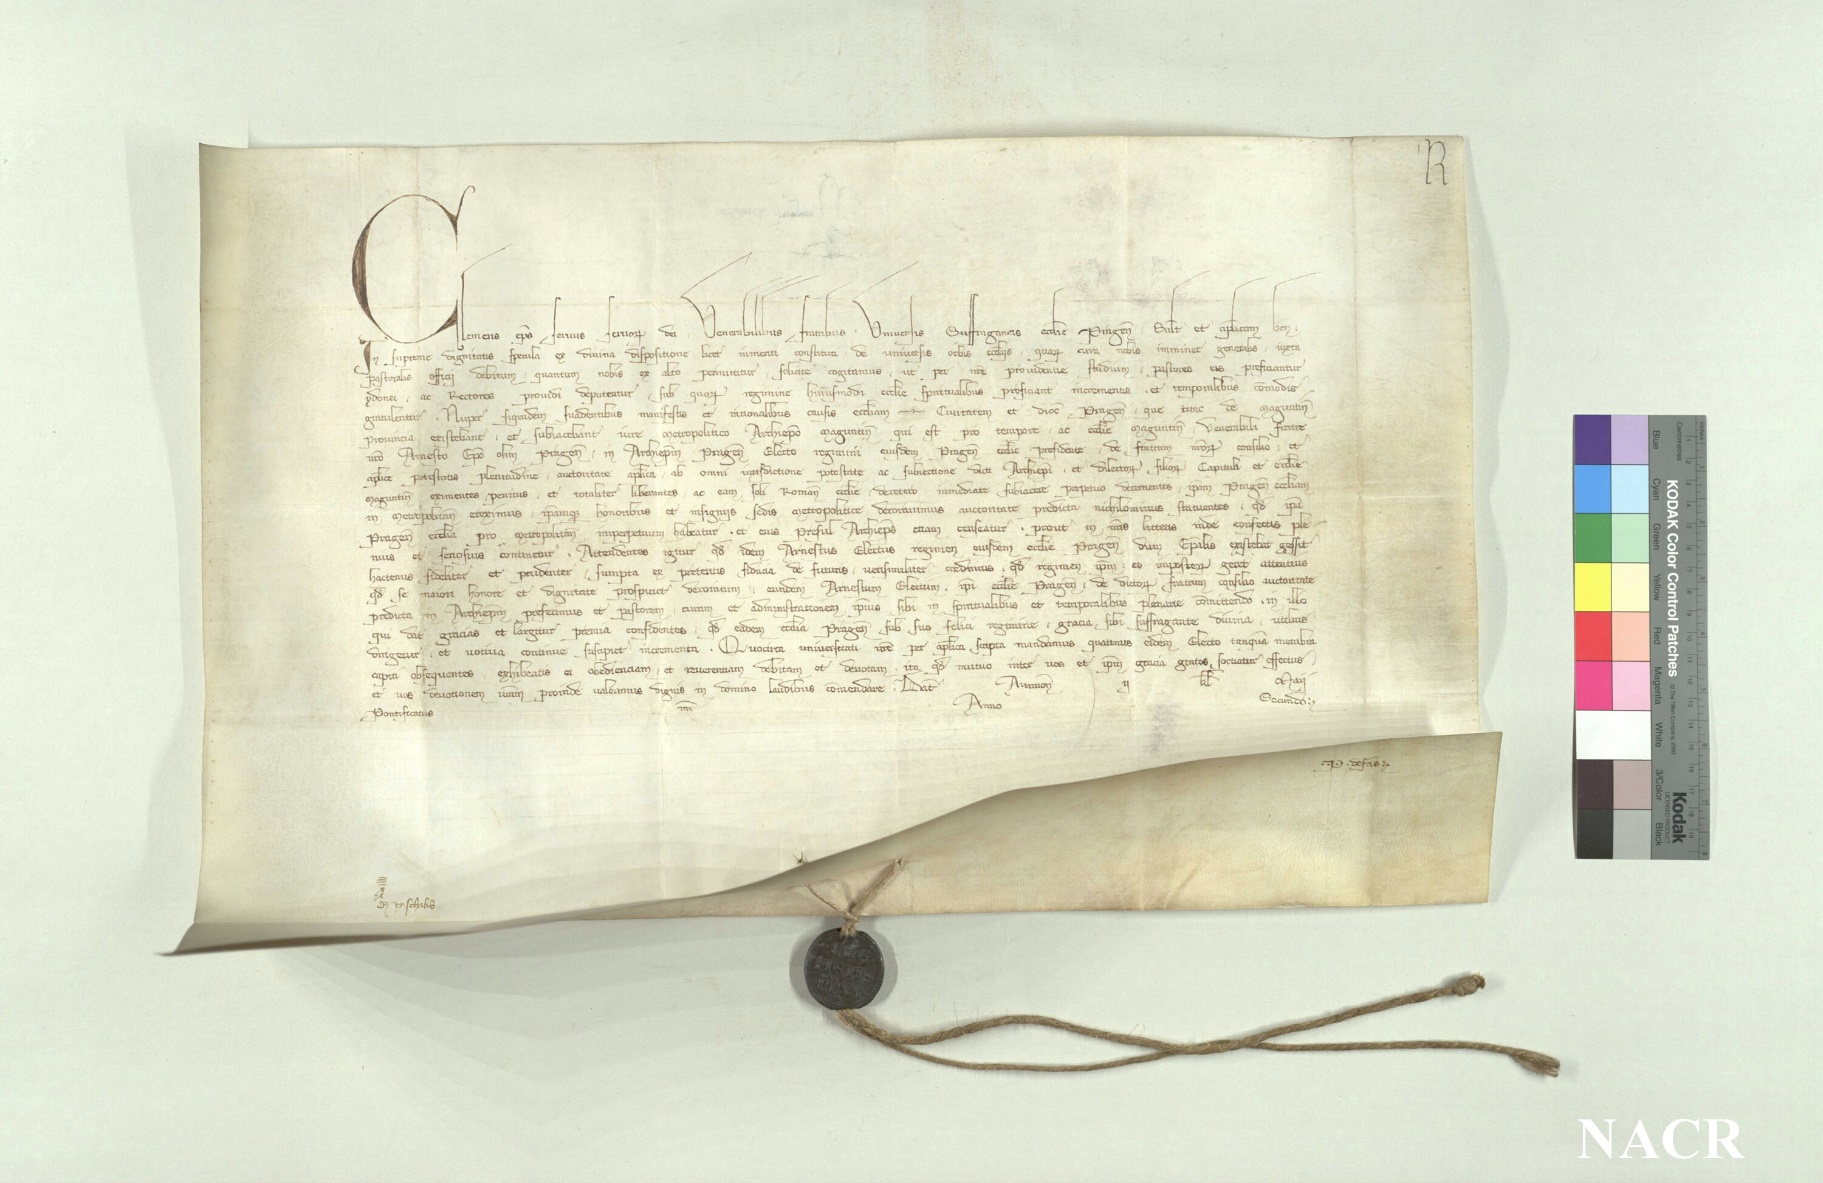 R
Clemens ep̄s servus servoꝝ dei Venerabilibus fratribus Universis Suffraganeis eccl̄ie Pragen̄ Salt̄ et ap̄licam ben̄.
In supreme dignitatis specula ex divina dispositione licet immeriti constituti de universis orbis eccl̄iis, quaꝝ cura nobis imminet generalis, iuxta
pastoralis officij debitum, quantum nobis ex alto permittitur, solicite cogitamus, ut per nr̄e providentie studium, pastores eis preficiantur
ydonei, ac Rectores providi deputentur, sub quoꝝ regimine huiusmodi eccl̄ie spiritualibus proficiant incrementis, et temporalibus com̄odis
gratulentur. Nuper siquidem suadentibus manifestis et rationabilibus causis eccl̄iam Civitatem et dioc̄ Pragen̄, que tunc de Maguntin̄
provincia existebant, et subiacebant iure metropolitico Archiepō Maguntin̄ qui est pro tempore, ac eccl̄ie Maguntin̄ Venerabili fratre
nr̄o Arnesto Ep̄o olim Pragen̄, in Archiep̄m Pragen̄ Electo regimini eiusdem Pragen̄ eccl̄ie presidente, de fratrum nr̄oꝝ consilio, et
ap̄lice potestatis plenitudine, auctoritate ap̄lica, ab omni iurisdictione potestate ac subiectione dicti Archiep̄i, et dilectoꝝ filioꝝ Capituli et eccl̄ie
Maguntin̄ eximentes penitus, et totaliter liberantes, ac eam, soli Roman̄ eccl̄ie decetero inmediate subiacere perpetuo decernentes, ip̄am Pragen̄ eccl̄iam
in metropolitan̄ ereximus, ip̄amqꝫ honoribus et insignijs sedis metropolitice decoravimus auctoritate predicta nichilominus statuentes, qd̄ ip̄a
Pragen̄ eccl̄ia pro metropolitan̄ imperpetuum habeatur, et eius Presul Archiep̄s etiam censeatur, prout in nr̄is litteris inde confectis ple-
nius et seriosius continetur. Attendentes igitur qd̄ idem Arnestus Electus regimen eiusdem eccl̄ie Pragen̄ dum Ep̄alis existebat gessit
hactenus fideliter et prudenter, sumpta ex preteritis fiducia de futuris, verisimiliter credimus, qd̄ regimen ip̄m, eo imposterꝝ geret attentius
qd̄ se maiori honore et dignitate prospiciet decoratum, eundem Arnestum Electum, ip̄i eccl̄ie Pragen̄, de dictoꝝ fratrum consilio auctoritate
predicta in Archiep̄m prefecimus et pastorem, curam et administrationem ip̄ius sibi in spiritualibus et temporalibus plenarie com̄ittendo, in illo
qui dat gracias et largitur premia confidentes, qd̄ eadem eccl̄ia Pragen̄ sub suo felici regimine, gracia sibi suffragante divina, utilius
dirigetur, et votiva continue suscipiet incrementa. Quocirca universitati vr̄e per ap̄lica scripta mandamus, quatinus eidem Electo tanqua membra
capiti obsequentes exhibeatis ei obedienciam, et reverentiam debitam et devotam, ita qd̄ mutuo inter vos et ip̄m gracia gratos sortiatur effectus
et vos devotionem vr̄am proinde valeamus dignis in domino laudibus com̄endare. Dat̄ Avinion̄ ij kl̄ Maij
Pontificatus nr̄i Anno Secundo